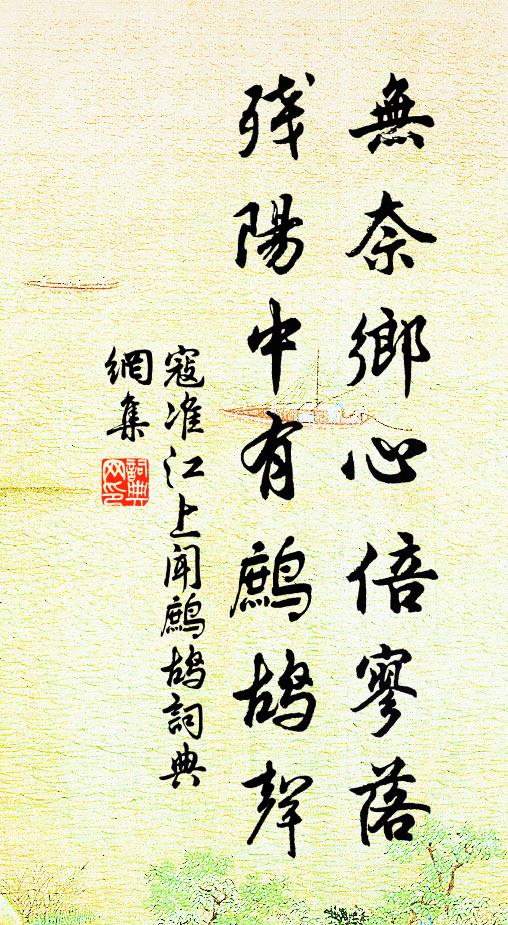 無奈鄉心倍寥落
殘陽中有鷓鴣聲
寇准江上聞鷓鴣詞典
網集
詞典
网印